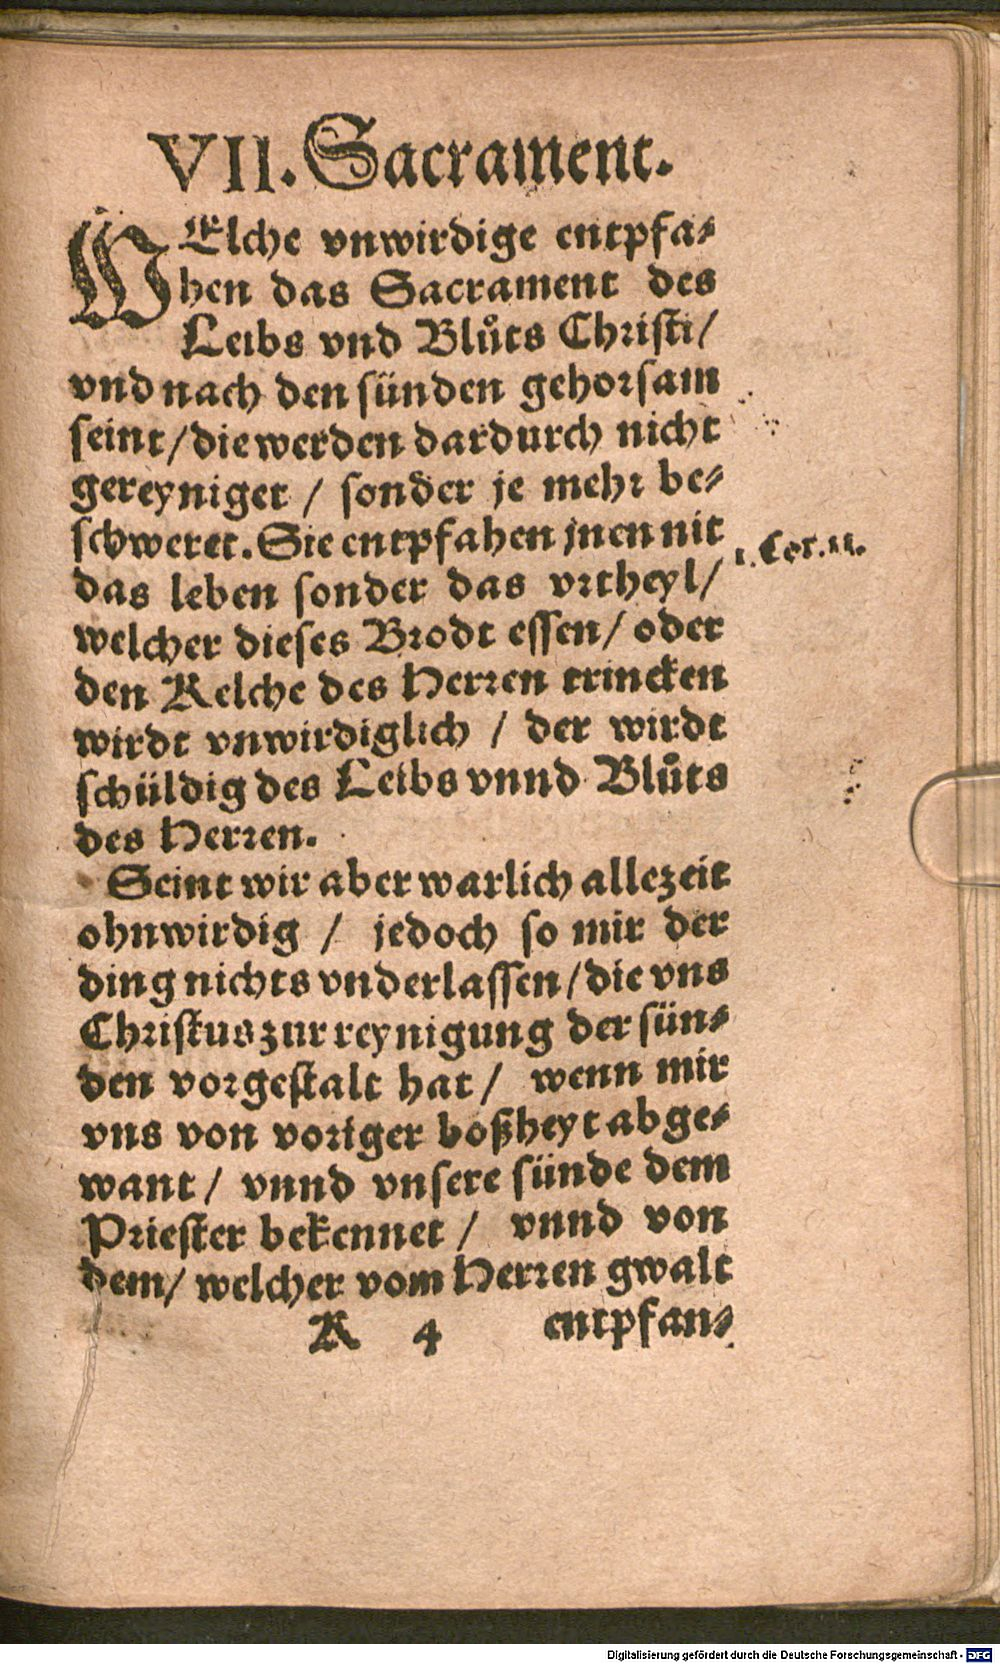 VII. Sacrament.
WElche vnwirdige entpfa-
hen das Sacrament des
Leibs vnd Blůts Christi/
vnd nach den sünden gehorsam
seint/die werden dardurch nicht
gereyniget / sonder je mehr be-
schweret. Sie entpfahen jnen nit
das leben sonder das vrtheyl/
1. Cor. 11.
welcher dieses Brodt essen/ oder
den Kelche des Herren trincken
wirdt vnwirdiglich / der wirdt
schüldig des Leibs vnnd Blůts
des Herren.
Seint wir aber warlich allezeit
ohnwirdig / jedoch so mir der
ding nichts vnderlassen/die vns
Christus zur reynigung der sün-
den vorgestalt hat/ wenn mir
vns von voriger boßheyt abge-
want/ vnnd vnsere sünde dem
Priester bekennet/ vnnd von
dem/ welcher vom Herren gwalt
K 4 entpfan-
Digitalisierung gefördert durch die Deutsche Forschungsgemeinschaft - DFG